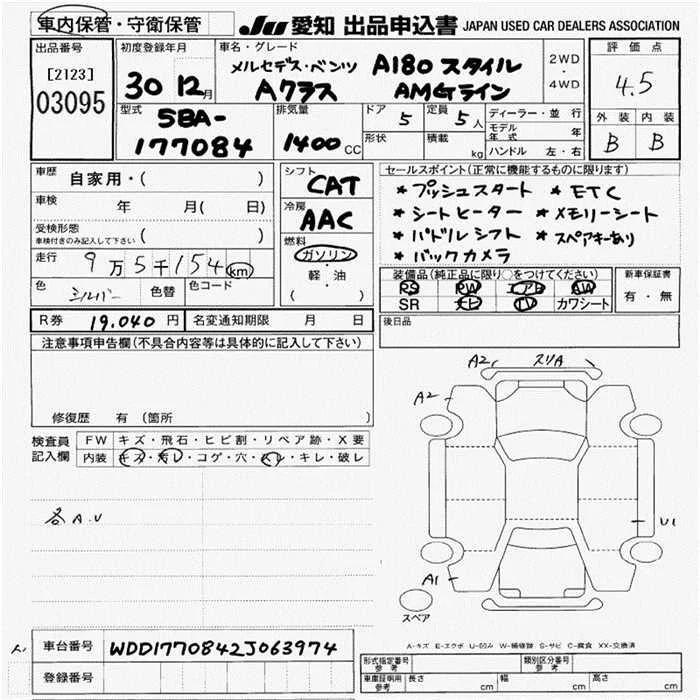 車内保管・守衛保管 JU 愛知 出品申込書 JAPAN USED CAR DEALERS ASSOCIATION
出品番号 初度登録年月 車名・グレード 2WD ・ 4WD 評価点
[2123] 30 12月 メルセデス・ベンツ A180 スタイル 4.5
03095 Aクラス AMGライン
型式 排気量 ドア 5 定員 5人 ディーラー・並行 外装 内装
5BA- モデル年式 年 B B
177084 1400 CC 形状 積載 kg ハンドル 左・右
車歴 自家用・( ) シフト CAT セールスポイント(正常に機能するものに限ります)
車検 年 月( 日) 冷房 AAC * プッシュスタート * ETC
受検形態 * シートヒーター * メモリーシート
車検付きのみ記入して下さい ( ) 燃料 * パドルシフト * スペアキーあり
走行 9万5千154km ガソリン * バックカメラ
色 シルバー 色替 色コード 軽・油
( )
装備品(純正品に限り○をつけてください) 新車保証書
PS PW エアB AW 有・無
SR ナビ TV カワシート
R券 19,040円 名変通知期限 月 日 後日品
注意事項申告欄(不具合内容等は具体的に記入して下さい)
修復歴 有(箇所
A2 スリA
A2
検査員 FW キズ・飛石・ヒビ割・リペア跡・X要
記入欄 内装 キズ・汚レ・コゲ・穴・スレ・キレ・破レ
各A.U
U1
A1
スペア
A-キズ E-エクボ U-凹み W-補修跡 S-サビ C-腐食 XX-交換済
車台番号 WDD1770842J063974
登録番号
形式指定番号 参考 類別区分番号 参考
車庫証明用 参考 長さ cm 幅 cm 高さ cm